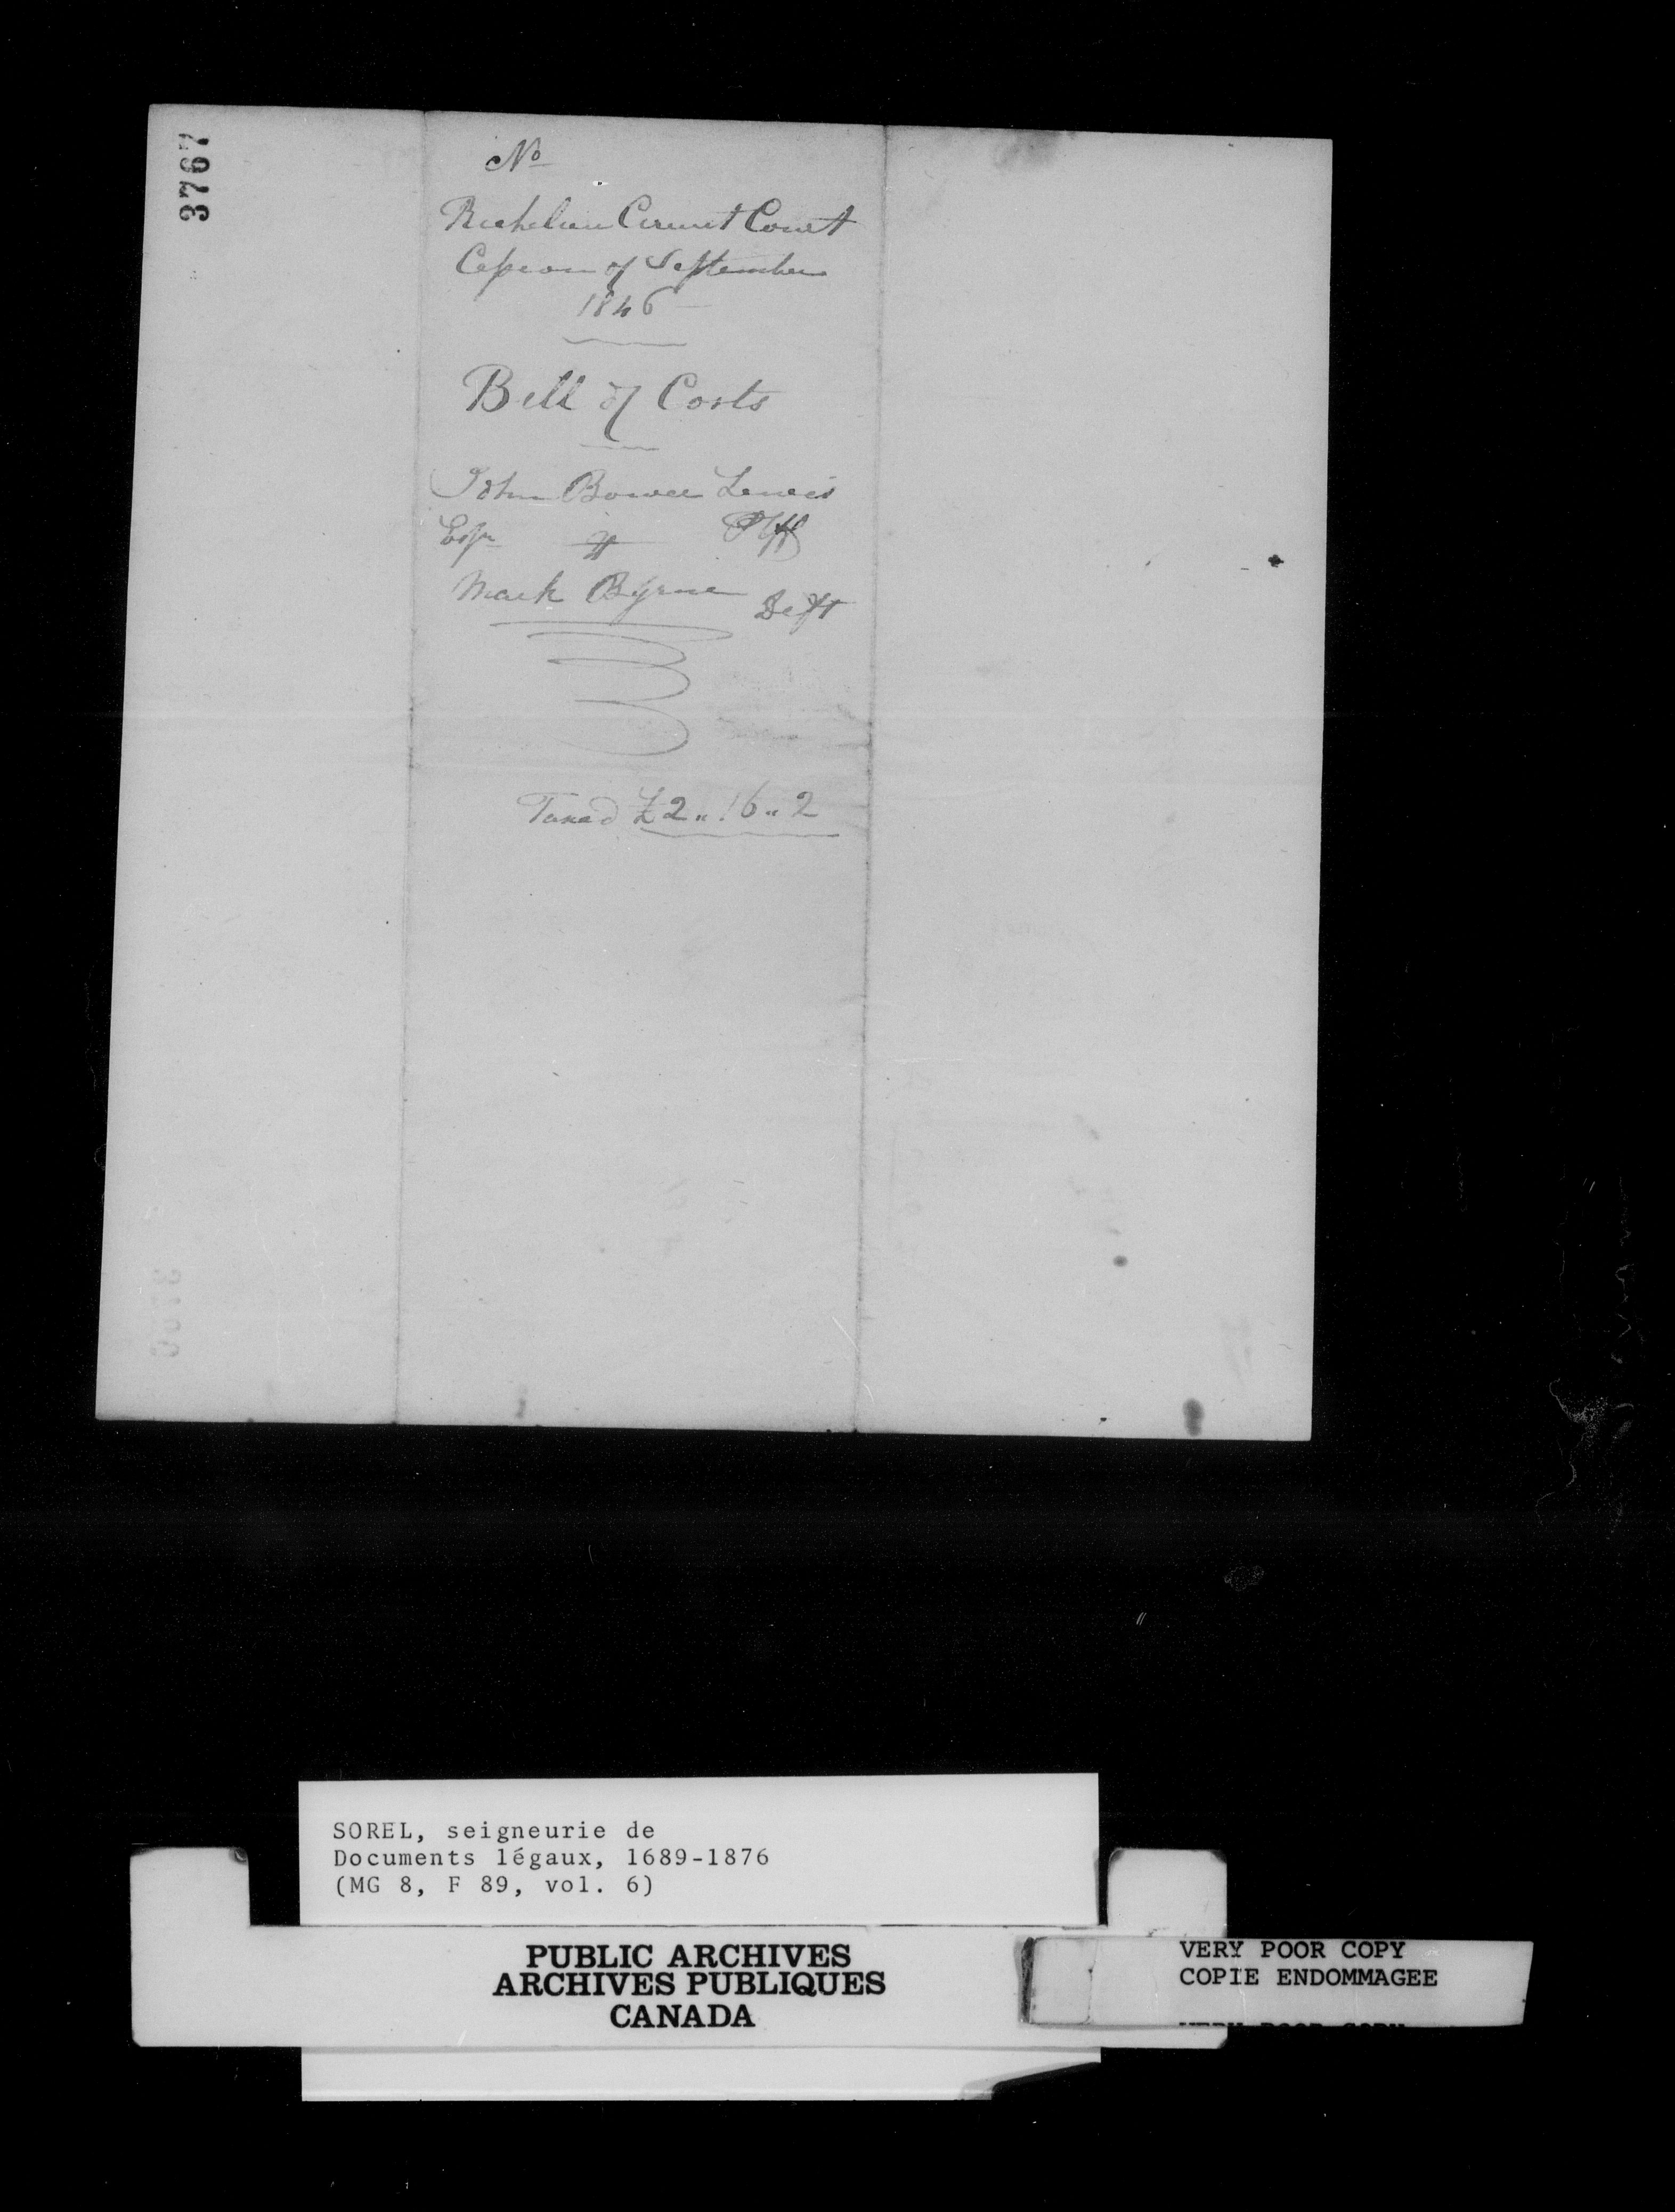 3767
No
Richelieu Circuit Court
Cession of September
1846
Bill of Costs
John Bower Lewis
Esqr vs Plff
Mark Byrne Deft
Taxed £2 " 16 " 2
SOREL, seigneurie de
Documents légaux, 1689-1876
(MG 8, F 89, vol. 6)
PUBLIC ARCHIVES
ARCHIVES PUBLIQUES
CANADA
VERY POOR COPY
COPIE ENDOMMAGEE
VERY POOR COPY